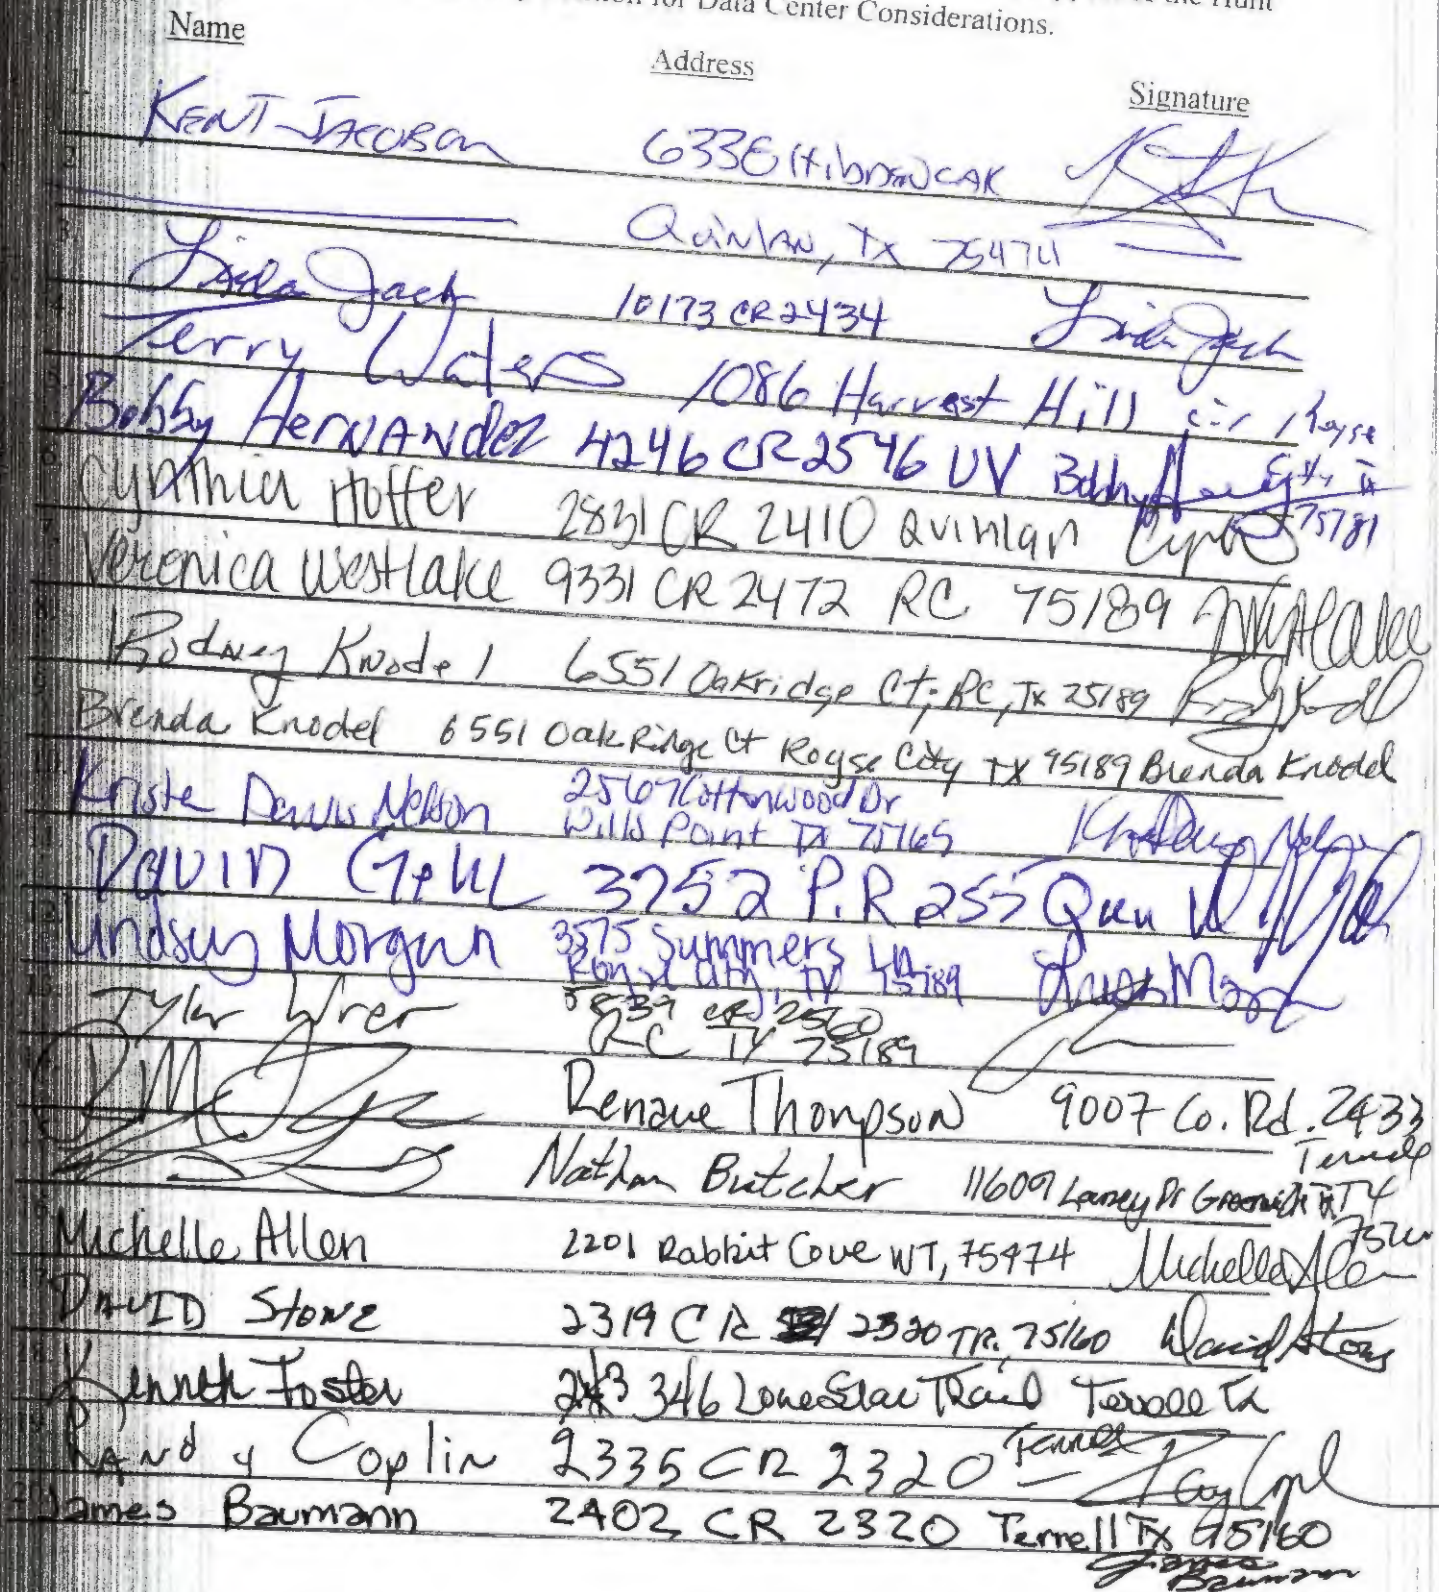 for Data Center Considerations. the Hunt
Name Address Signature
KENT JACOBSON 6338 Hibdon OAK
2 Quinlan, TX 75474
3 Linda Jack 10173 CR 2434 Linda Jack
4 Terry Waters 1086 Harvest Hill cir Royse
5 Bobby HERNANDEZ 4246 CR 2546 UV Bobby City Tx
6 Cynthia Hoffer 2831 CR 2410 Quinlan 75189
7 Veronica Westlake 9331 CR 2472 RC 75189 Westlake
8 Rodney Knodel 6551 Oakridge Ct, RC, TX 75189
9 Brenda Knodel 6551 Oak Ridge Ct Royse City TX 75189 Brenda Knodel
10 Krista Davis Nelson 2567 Cottonwood Dr
Wills Point TX 75169
11 DAVID GEHL 3752 P.R 255
12 Lindsey Morgan 3575 Summers Ln
Royse City, TX 75189
13 Tyler 5839 CR 2560
RC TX 75189
Renave Thompson 9007 Co. Rd. 2433
Terrell
Nathan Butcher 11609 Laney Dr TX
16 Michelle Allen 2201 Rabbit Cove WT, 75474 Michelle Allen
17 DAVID STONE 2319 CR 2320 TR. 75160 David Stone
18 Kenneth Foster 346 Lone Star Trail Terrell Tx
19 RANdy Coplin 2335 CR 2320 Terrell
20 James Baumann 2402 CR 2320 Terrell TX 75160
James
Baumann